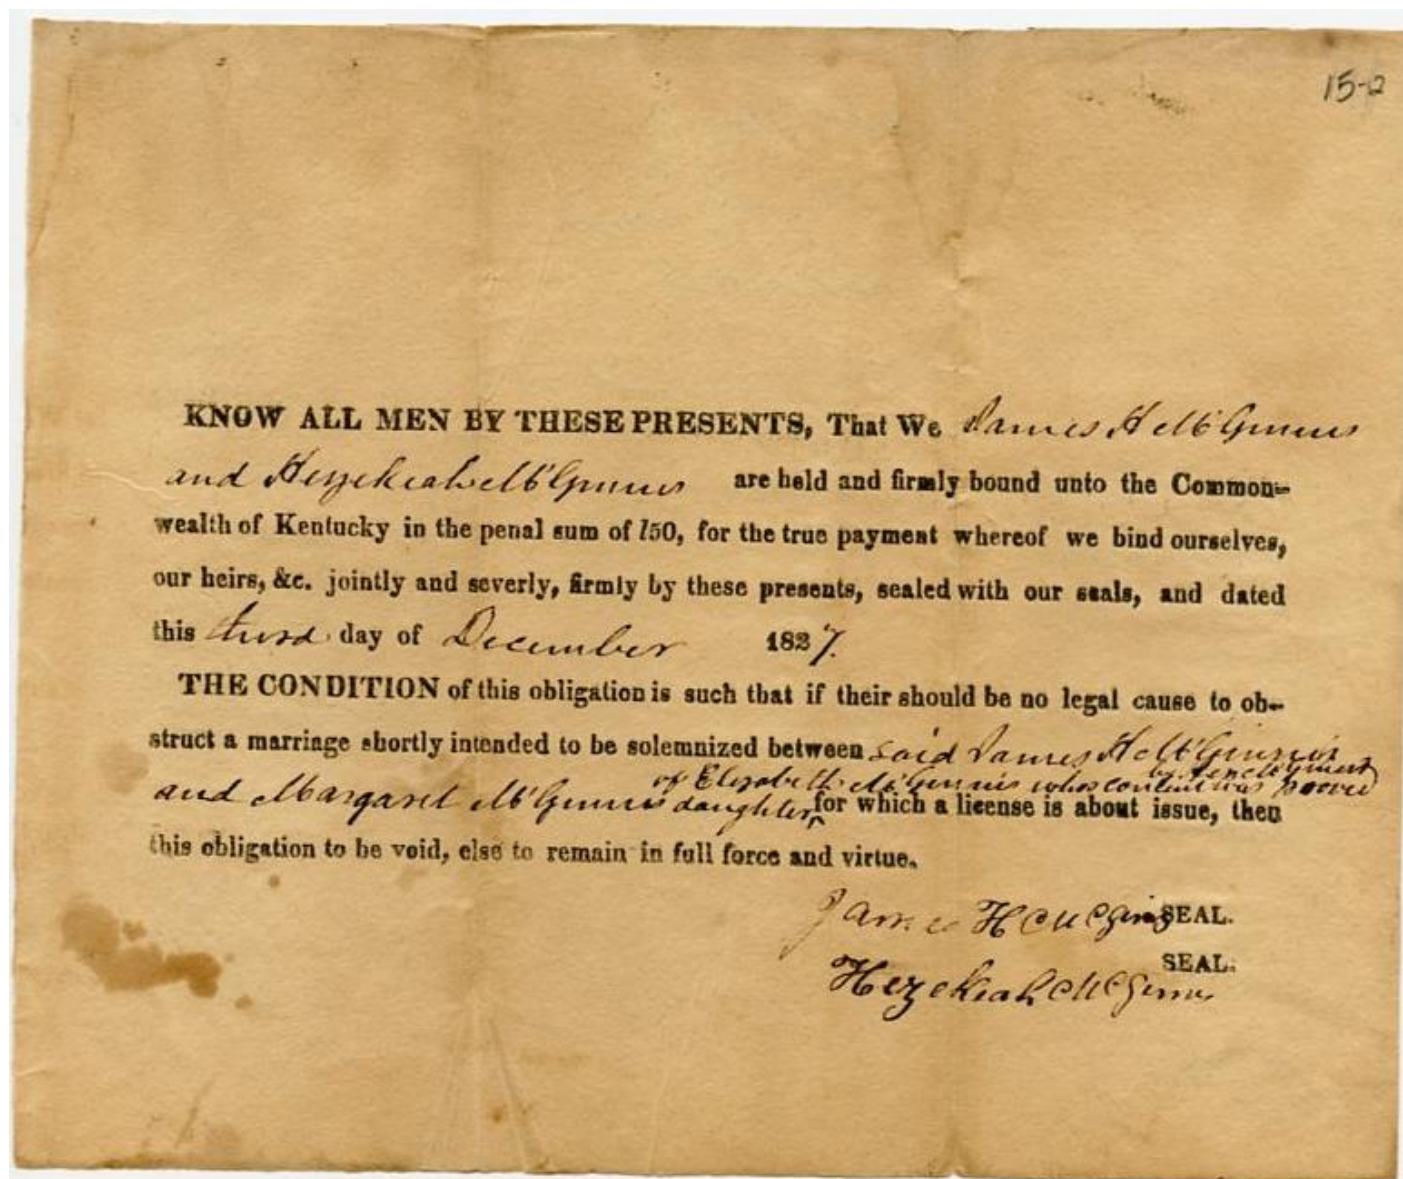 15-2
KNOW ALL MEN BY THESE PRESENTS, That We James H McGinnis
and Hezekiah McGinnis are held and firmly bound unto the Common-
wealth of Kentucky in the penal sum of 150, for the true payment whereof we bind ourselves,
our heirs, &c. jointly and severly, firmly by these presents, sealed with our seals, and dated
this third day of December 1827.
THE CONDITION of this obligation is such that if their should be no legal cause to ob-
struct a marriage shortly intended to be solemnized between said James H McGinnis
of Elizabeth McGinnis whos consent was proved
and Margaret McGinnis daughter ^ for which a license is about issue, then
this obligation to be void, else to remain in full force and virtue.
James H McGinnis SEAL.
SEAL.
Hezekiah McGinnis